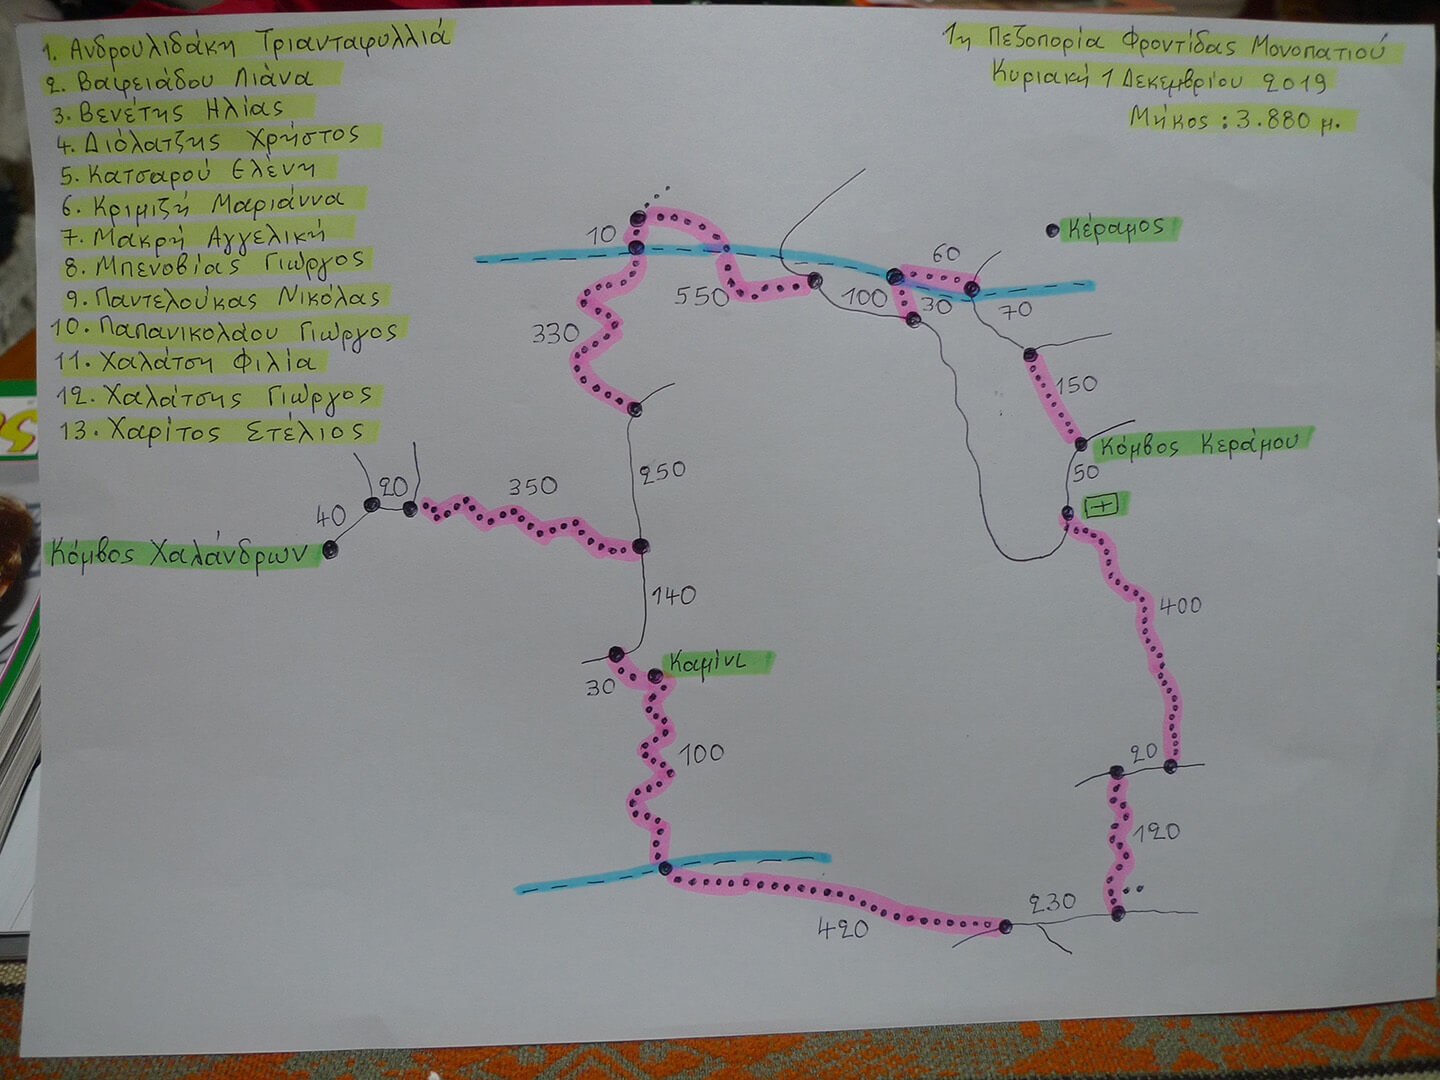 1. Ανδρουλιδάκη Τριανταφυλλιά
2. Βαφειάδου Λιάνα
3. Βενέτης Ηλίας
4. Διόλατζης Χρήστος
5. Κατσαρού Ελένη
6. Κριμιζή Μαριάννα
7. Μακρή Αγγελική
8. Μπενοβίας Γιώργος
9. Παντελούκας Νικόλας
10. Παπανικολάου Γιώργος
11. Χαλάτση Φιλία
12. Χαλάτσης Γιώργος
13. Χαρίτος Στέλιος
1η Πεζοπορία Φροντίδας Μονοπατιού
Κυριακή 1 Δεκεμβρίου 2019
Μήκος : 3.880 μ.
Κέραμος
10
60
550
100
30
70
330
150
Κόμβος Κεράμου
250
50
20
350
40
Κόμβος Χαλάνδρων
140
400
Καμίνι
30
100
20
120
230
420